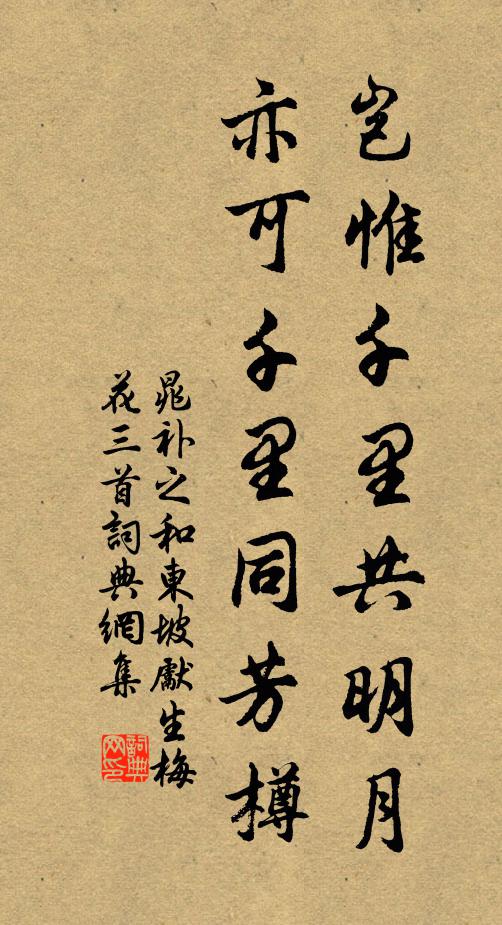 岂惟千里共明月
亦可千里同芳樽
晁补之和東坡獻生梅
花三首詞典網集
詞典
网印